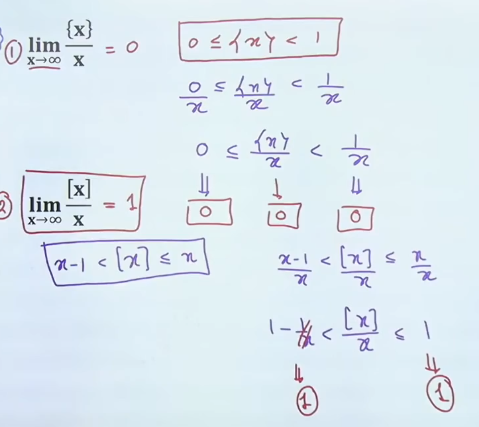 ① lim x→∞ {x}/x = 0
0 ≤ {x} < 1
0/x ≤ {x}/x < 1/x
0 ≤ {x}/x < 1/x
⇓ ↓ ⇓
0 0 0
② lim x→∞ [x]/x = 1
x-1 < [x] ≤ x
x-1/x < [x]/x ≤ x/x
1 - 1/x < [x]/x ≤ 1
⇓ ⇓
1 1